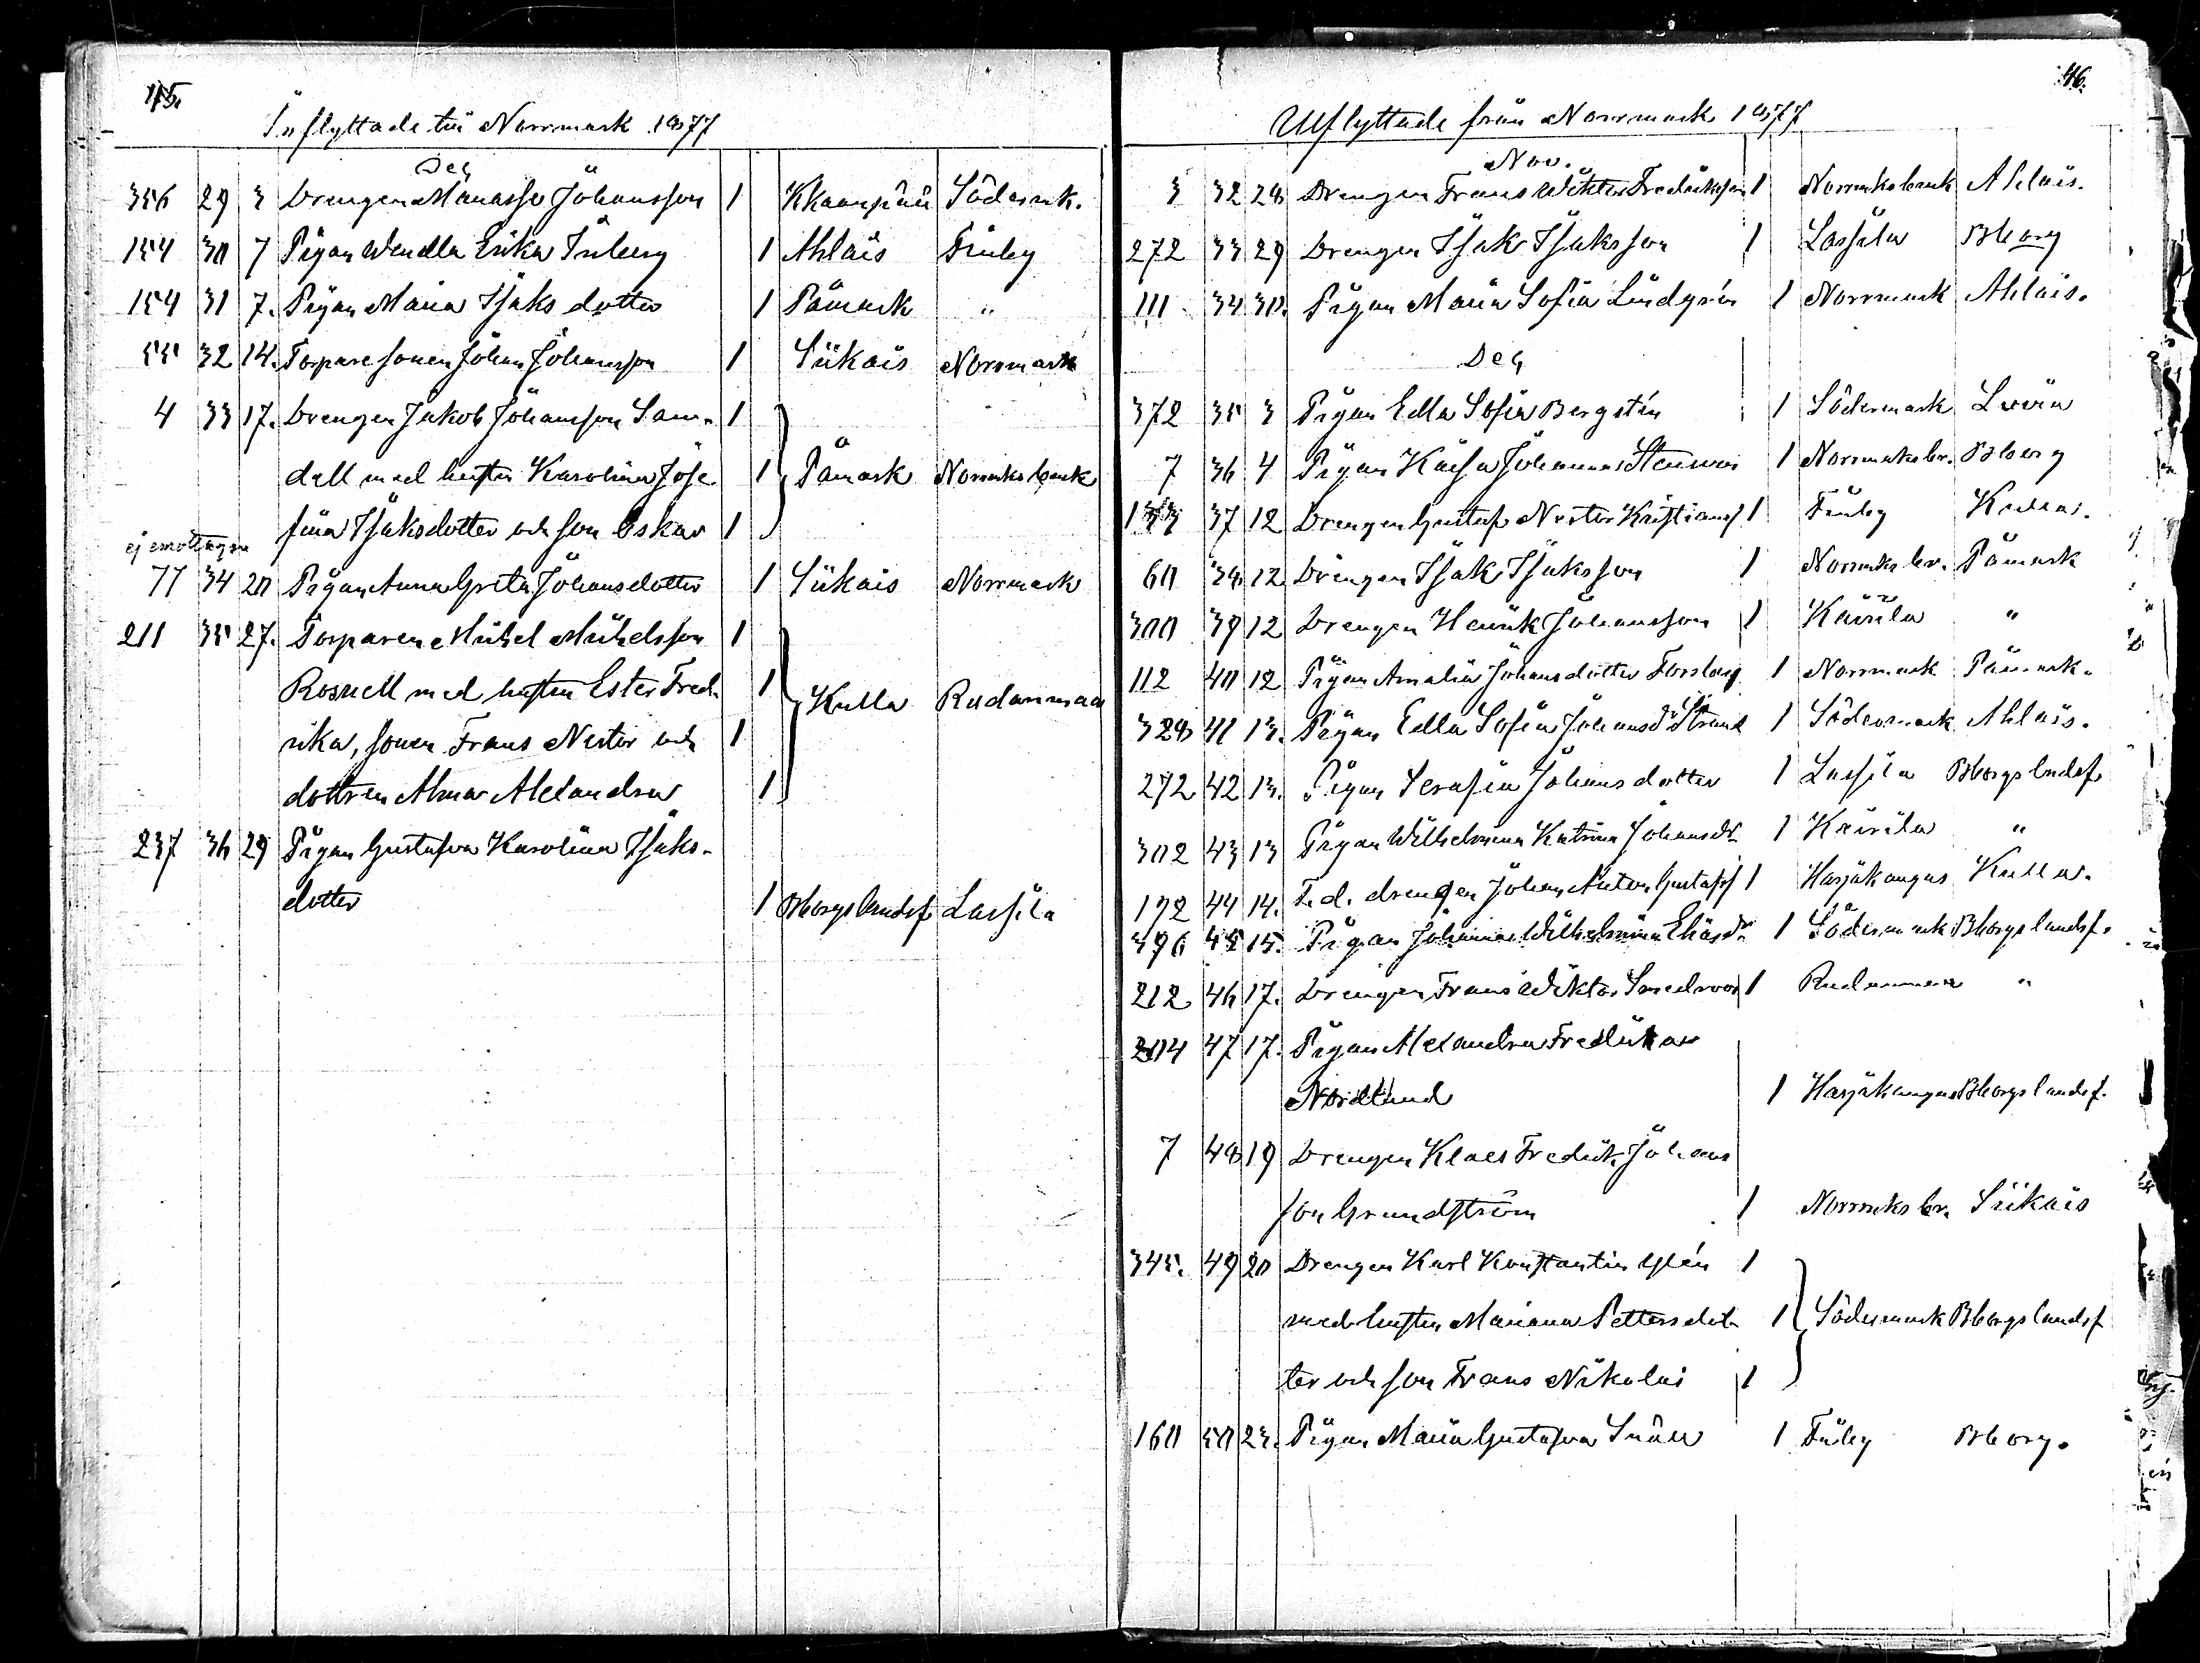 45.
Inflyttade till Norrmark 1877
Dec
356 29 3 Drengen Manasse Johansson 1 Kkaanpää Södermk.
154 30 7 Pigan Wendla Erika Friberg 1 Ahlais Finby
154 31 7. Pigan Maria Isaks dotter 1 Påmark "
55 32 14. Torparesonen Johan Johansson 1 Siikais Norrmark
4 33 17. Drengen Jakob Johansson San-
1
dell med hustru Karolina Jose- 1 Påmark Norrmksbruk
fina Isaksdotter och son Oskar 1
ej emottagen
77 34 20 Pigan Anna Greta Johansdotter 1 Siikais Norrmark
211 35 27. Torparen Mikel Mikelsson 1
Rosnell med hustru Ester Fred- 1 Kulla Rudanmaa
rika, sonen Frans Nestor och 1
dottren Alma Alexandra 1
237 36 29 Pigan Gustafva Karolina Isaks-
dotter 1 Bborgs landsf. Lassila
46.
Utflyttade från Norrmark 1877
Nov.
3 32 28 Drengen Frans Wiktor Fredriksson 1 Norrmksbruk Ahlais.
272 33 29 Drengen Isak Isaksson 1 Lassila Bborg
111 34 30. Pigan Maria Sofia Lindgrén 1 Norrmark Ahlais.
Dec
372 35 3 Pigan Edla Sofia Bergstén 1 Södermark Luvia
7 36 4 Pigan Kaisa Johanna Stenroos 1 Norrmksbr. Bborg
153 37 12 Drengen Gustaf Nestor Kristianss 1 Finby Kulla.
60 38 12 Drengen Isak Isaksson 1 Norrmksbr. Påmark
300 39 12 Drengen Henrik Johansson 1 Kairila "
112 40 12 Pigan Amalia Johansdotter Forsberg 1 Norrmark Påmark.
328 41 13. Pigan Edla Sofia Johansdr Strand 1 Södermark Ahlais.
272 42 13. Pigan Serafia Johansdotter 1 Lassila Bborgs landsf.
302 43 13 Pigan Wilhelmina Katrina Johansdr 1 Kairila "
192 44 14. F. d. drengen Johan Anton Gustafss 1 Harjakangas Kulla.
396 45 15. Pigan Johanna Wilhelmina Eliasdr 1 Södermark Bborgs landsf.
212 46 17. Drengen Frans Wiktor Smedroos 1 Rudanmaa "
204 47 17. Pigan Alexandra Fredrika
Nordlund 1 Harjakangas Bborgs landsf.
7 48 19 Drengen Klaes Fredrik Johans
son Grundström 1 Norrmks br. Siikais
345. 49 20 Drengen Karl Konstantin Glén 1
med hustru Mariana Petters dot- 1 Södermark Bborgs landsf
ter och son Frans Nikolai 1
160 50 23. Pigan Maria Gustafva Snäll 1 Finby Bborg.